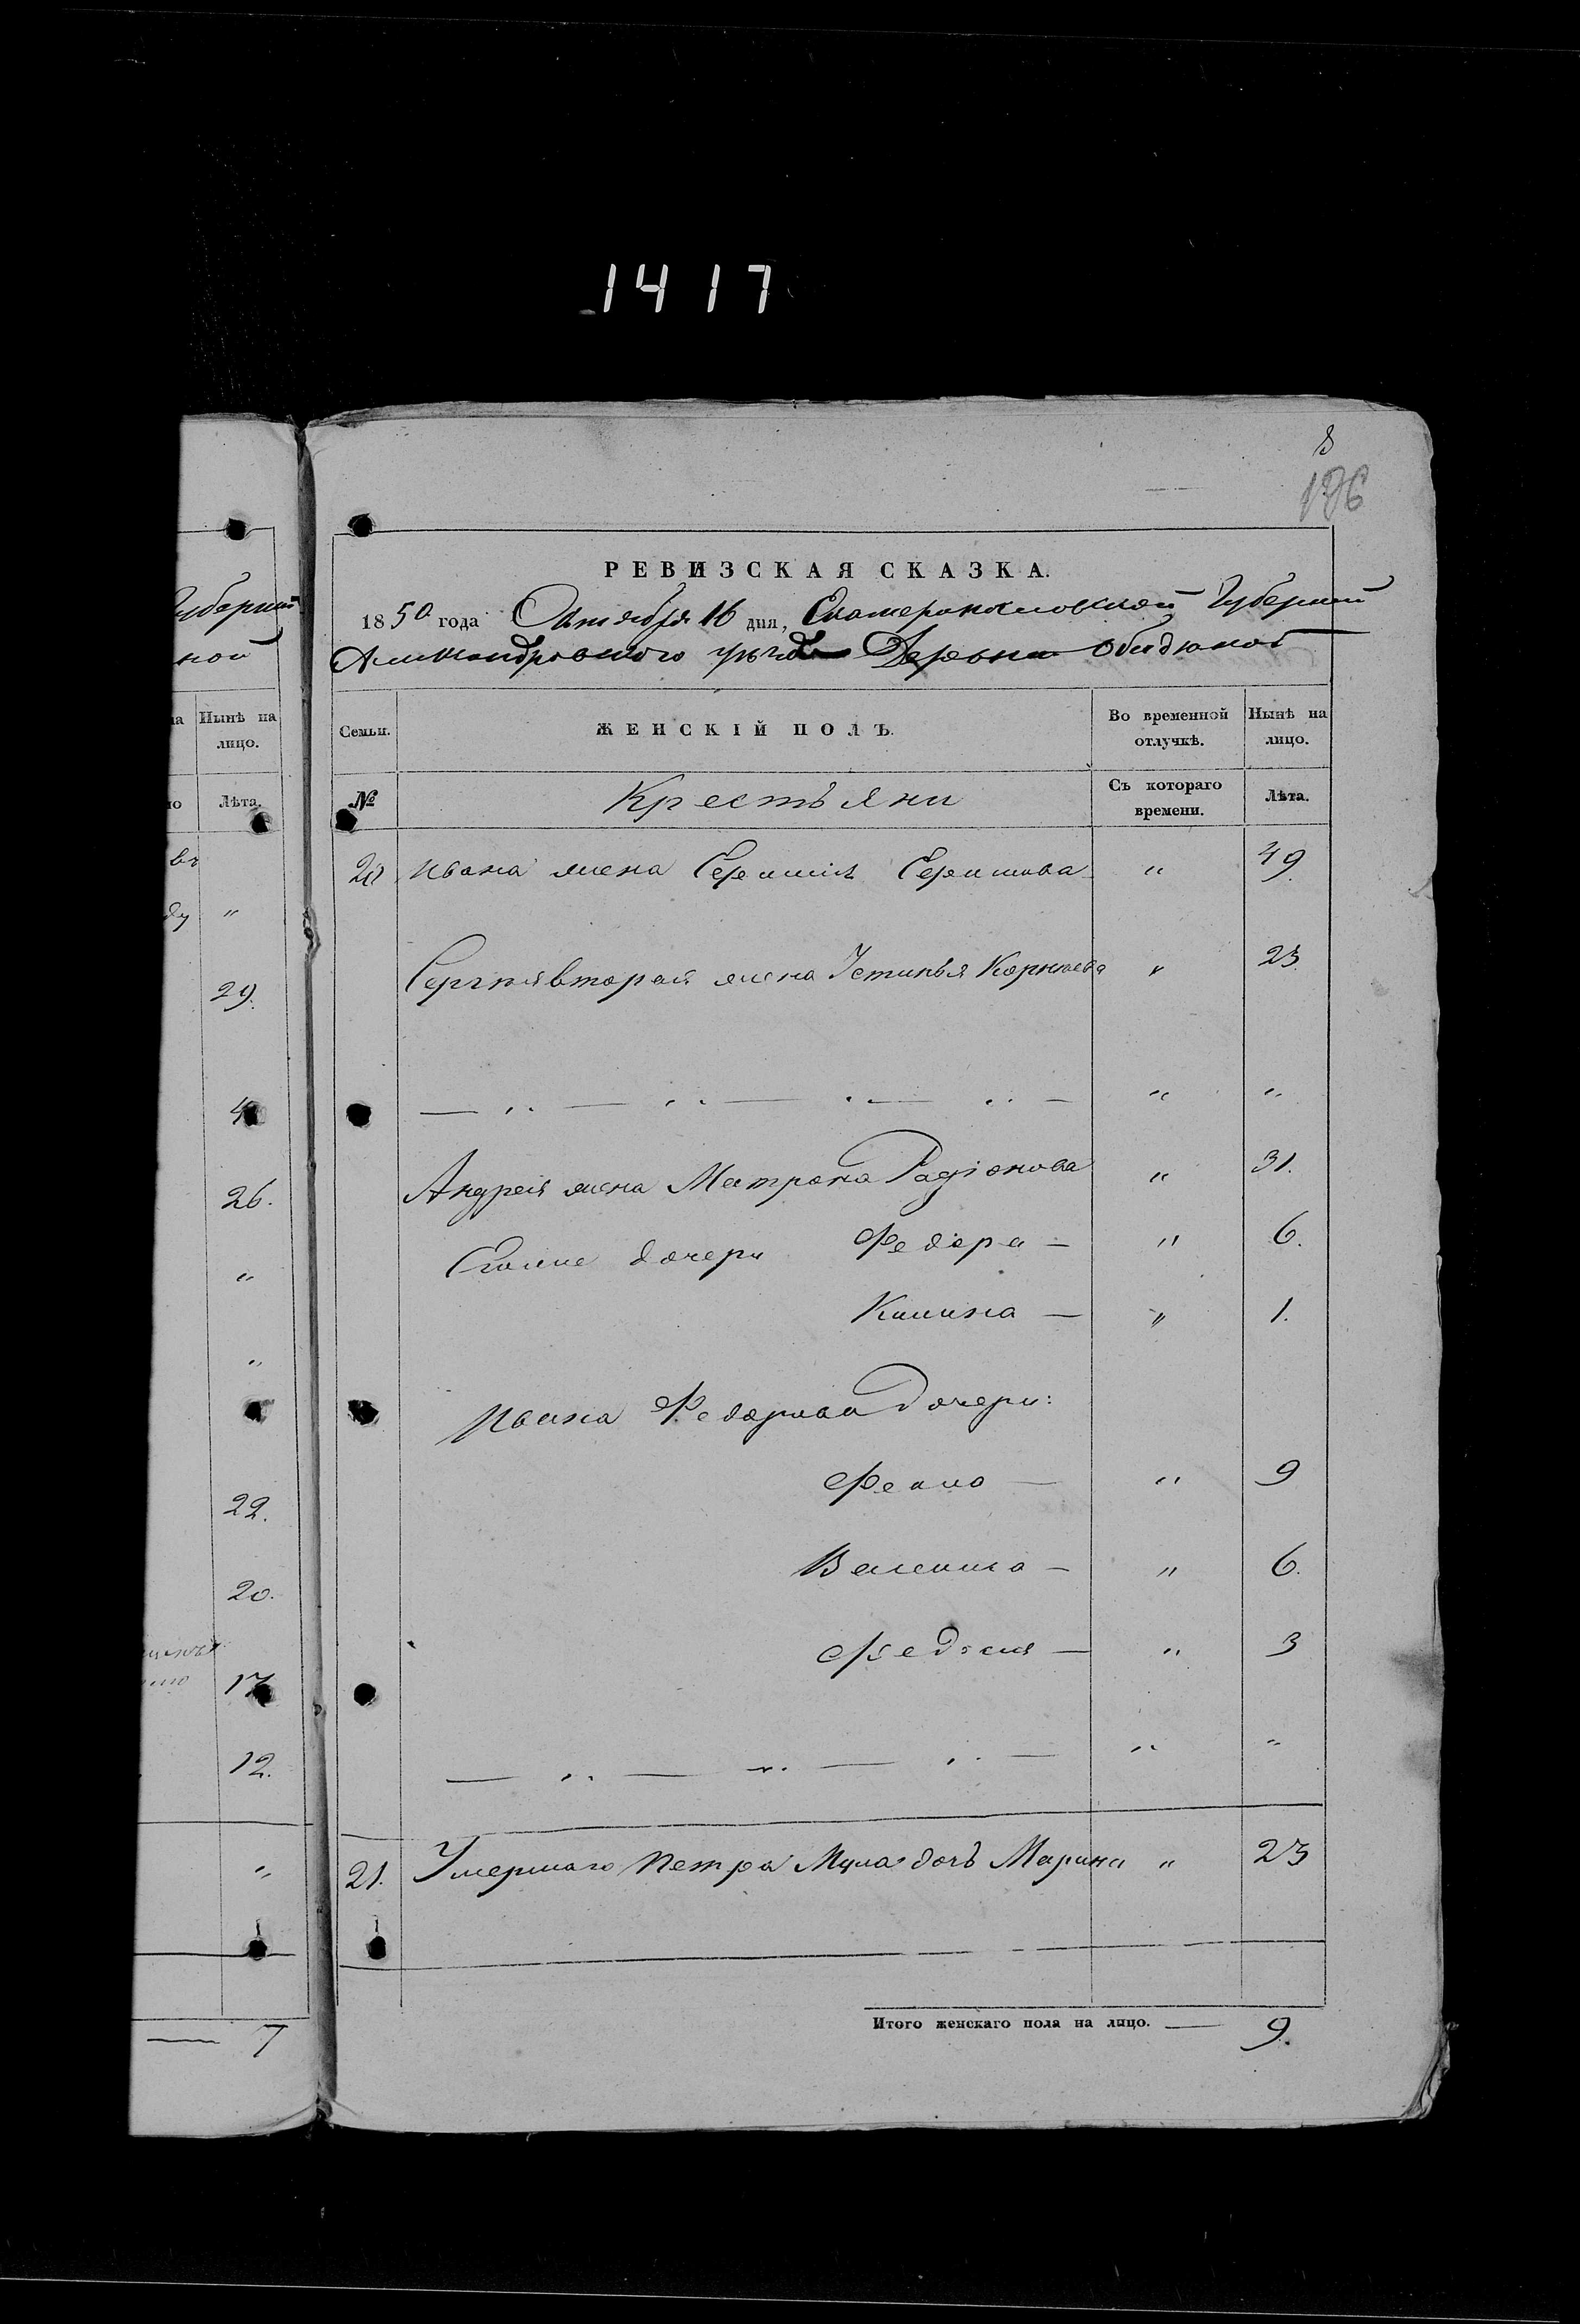 1417
8
196
РЕВИЗСКАЯ СКАЗКА.
1850 года Октября 16 дня, Екатеринославской Губерний
Александровского уѣзда Деревни Обидюной
Семьи.
ЖЕНСКІЙ ПОЛЪ.
Во временной отлучкѣ.
Нынѣ на лицо.
№
Крестьяни
Съ котораго времени.
Лѣта.
20 Ивана жена " 49
Сергея вторая жена Устинья Корнѣева " 23
— " — " — " — " — " "
Андрея жена Матрона Радіонова " 31.
Егоже дочери Федора — " 6.
Килина — " 1.
Ивана Федорова дочери:
Фекла — " 9
Василиса — " 6.
Федосия — " 3
— " — " — " — " "
21. Умершаго Петра Мула дочъ Марина " 23
Итого женскаго пола на лицо. — 9.
Губерний
ной
Нынѣ на лицо.
Лѣта.
"
29.
26.
"
"
22.
20.
17
12.
"
— 7